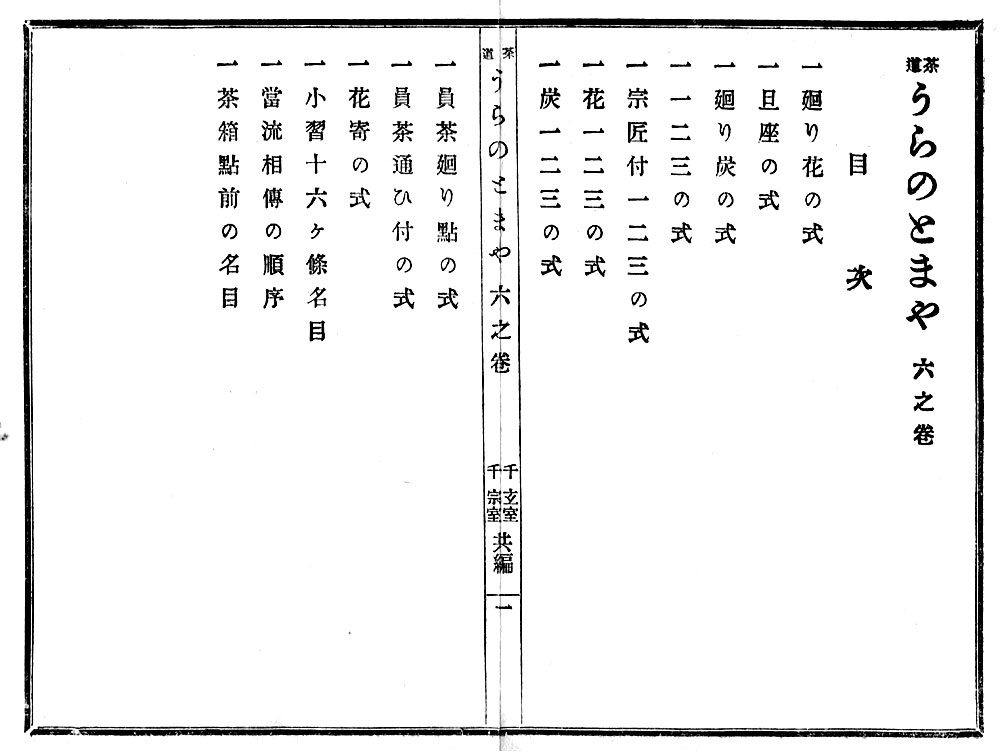 茶道うらのとまや 六之卷
目次
一廻り花の式
一且座の式
一廻り炭の式
一一二三の式
一宗匠付一二三の式
一花一二三の式
一炭一二三の式
茶道うらのとまや六之卷
千玄室
千宗室
共編
一
一員茶廻り點の式
一員茶通ひ付の式
一花寄の式
一小習十六ヶ條名目
一當流相傳の順序
一茶箱點前の名目